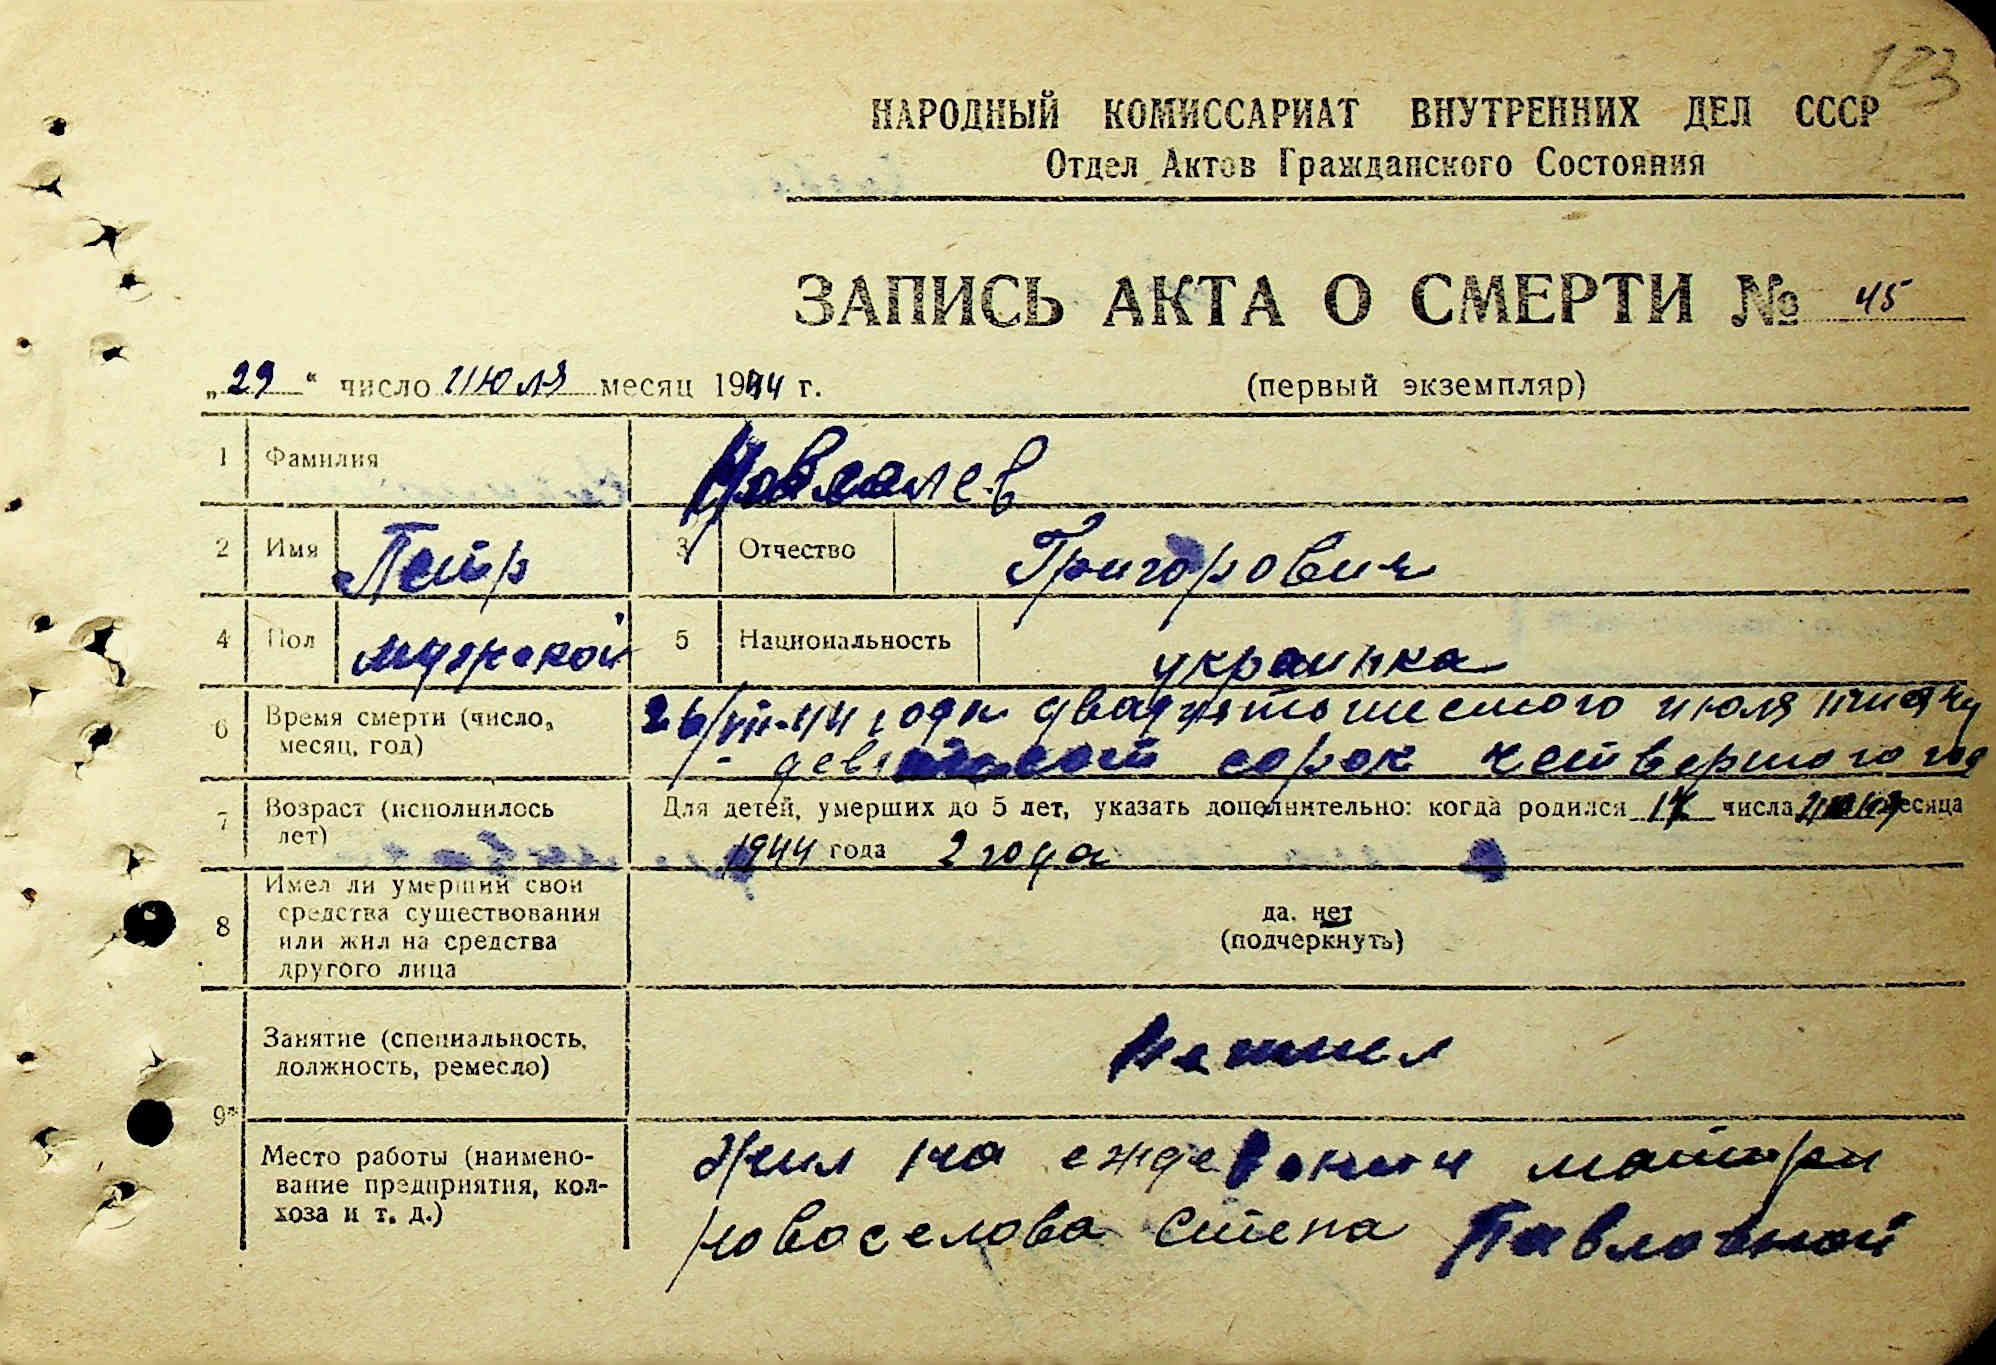 123
НАРОДНЫЙ КОМИССАРИАТ ВНУТРЕННИХ ДЕЛ СССР
Отдел Актов Гражданского Состояния
ЗАПИСЬ АКТА О СМЕРТИ № 45
„29“ число июля месяц 1944 г.
(первый экземпляр)
1 Фамилия
2 Имя Петр 3 Отчество Григорович
4 Пол мужской 5 Национальность украинка
6 Время смерти (число, месяц, год) 26/VII-44 года двадцатошестого июля тисячу
девятсот сорок четвертого год
7 Возраст (исполнилось лет) Для детей, умерших до 5 лет, указать дополнительно: когда родился 17 числа месяца
1944 года 2 года
8 Имел ли умерший свои средства существования или жил на средства другого лица
да, нет
(подчеркнуть)
9* Занятие (специальность, должность, ремесло)
Место работы (наименование предприятия, колхоза и т. д.) Жил на еждевении матери
новоселова Степа Павловной